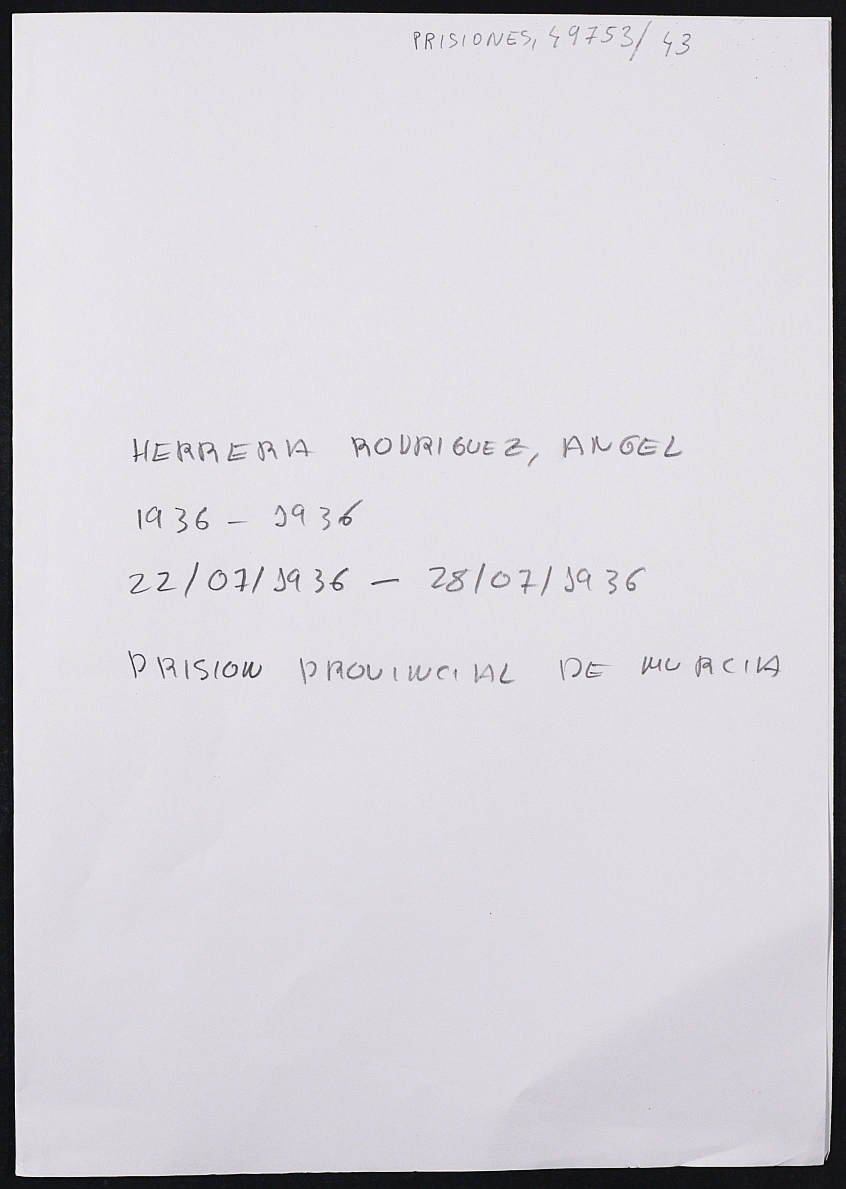 PRISIONES, 49753/43
HERRERA RODRIGUEZ, ANGEL
1936 - 1936
22/07/1936 - 28/07/1936
PRISION PROVINCIAL DE MURCIA